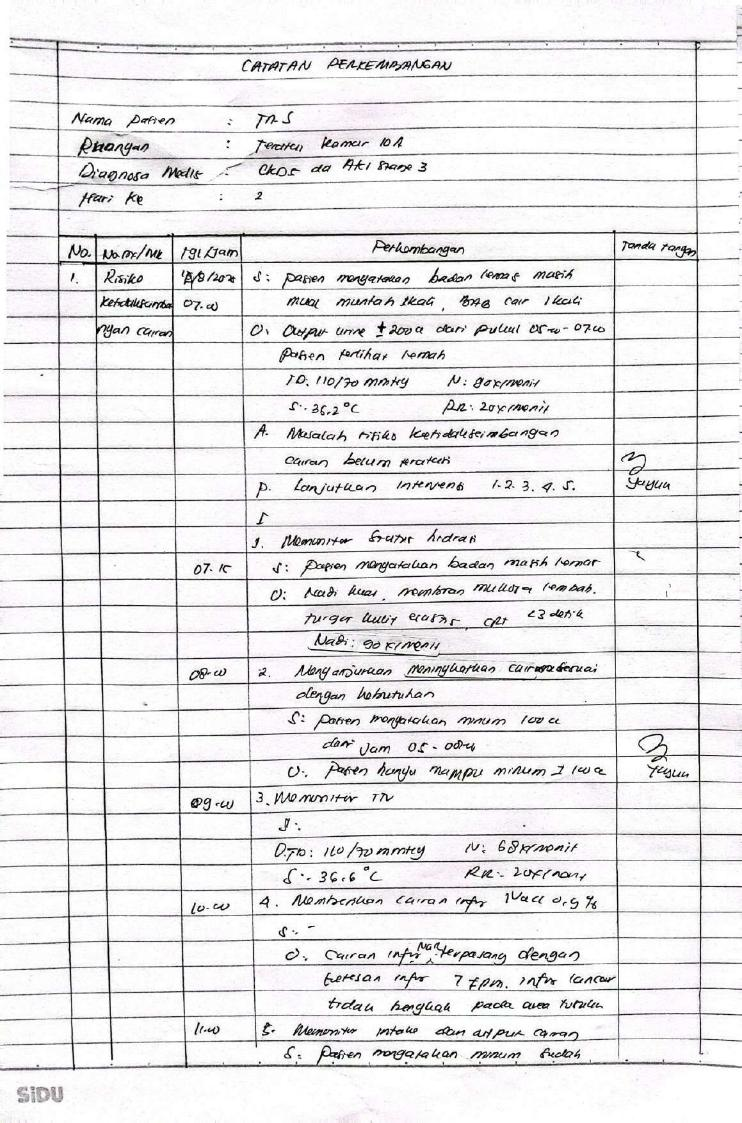 CATATAN PERKEMBANGAN
Nama pasien : Tn. S
Ruangan : Teratai Kamar 10A
Diagnosa Medis : CKD5 dd AKI Stage 3
Hari Ke : 2
No. No.Dx/Mk Tgl/Jam Perkembangan Tanda tangan
1. Risiko S: pasien mengatakan badan lemas masih
Ketidakseimba 07.00 mual muntah 1kali, BAB cair 1kali
ngan cairan O: Output urine ± 200cc dari pukul 05.00-07.00
pasien terlihat lemah
TD: 110/70 mmHg N: 90x/menit
S: 36,2°C RR: 20x/menit
A. Masalah risiko ketidakseimbangan
cairan belum teratasi
P. Lanjutkan intervensi 1.2.3.4.5. Yayuu
I
1. Memonitor Status hidrasi
07.15 S: pasien mengatakan badan masih lemas
O: Nadi kuat, membran mukosa lembab,
turgor kulit elastis, CRT <3 detik
Nadi: 90x/menit
08.00 2. Menganjurkan meningkatkan cairan sesuai
dengan kebutuhan
S: pasien mengatakan minum 100cc
dari Jam 05-08.00
O: Pasien hanya mampu minum ± 100cc Yayuu
09.00 3. Memonitor TTV
S:
O: TD: 110/70 mmHg N: 68x/menit
S: 36.6°C RR: 20x/menit
10.00 4. Memberikan cairan infus NaCl 0,9%
S: -
O: Cairan infus NaCl terpasang dengan
tetesan infus 7 tpm. infus lancar
tidak bengkak pada area tusukan
11.00 5. Memonitor intake dan output cairan
S: Pasien mengatakan minum sudah
SiDU